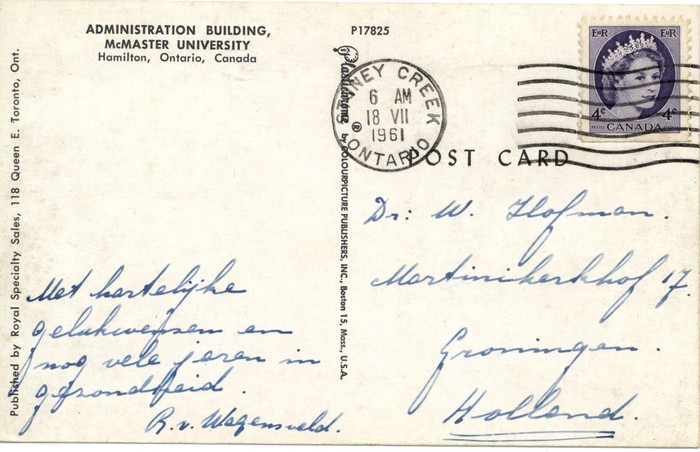 ADMINISTRATION BUILDING,
McMASTER UNIVERSITY
Hamilton, Ontario, Canada
P17825
Published by Royal Specialty Sales, 118 Queen E. Toronto, Ont.
Plastichrome ® by COLOURPICTURE PUBLISHERS, INC., Boston 15, Mass., U.S.A.
STONEY CREEK
6 AM
18 VII
1961
ONTARIO
EIIR EIIR
4c 4c
POSTES CANADA POSTAGE
POST CARD
Met hartelijke
gelukwensen en
nog vele jaren in
gezondheid.
R.v. Wagensveld.
Dr: W. Hofman.
Martinikerkhof 17.
Groningen.
Holland.